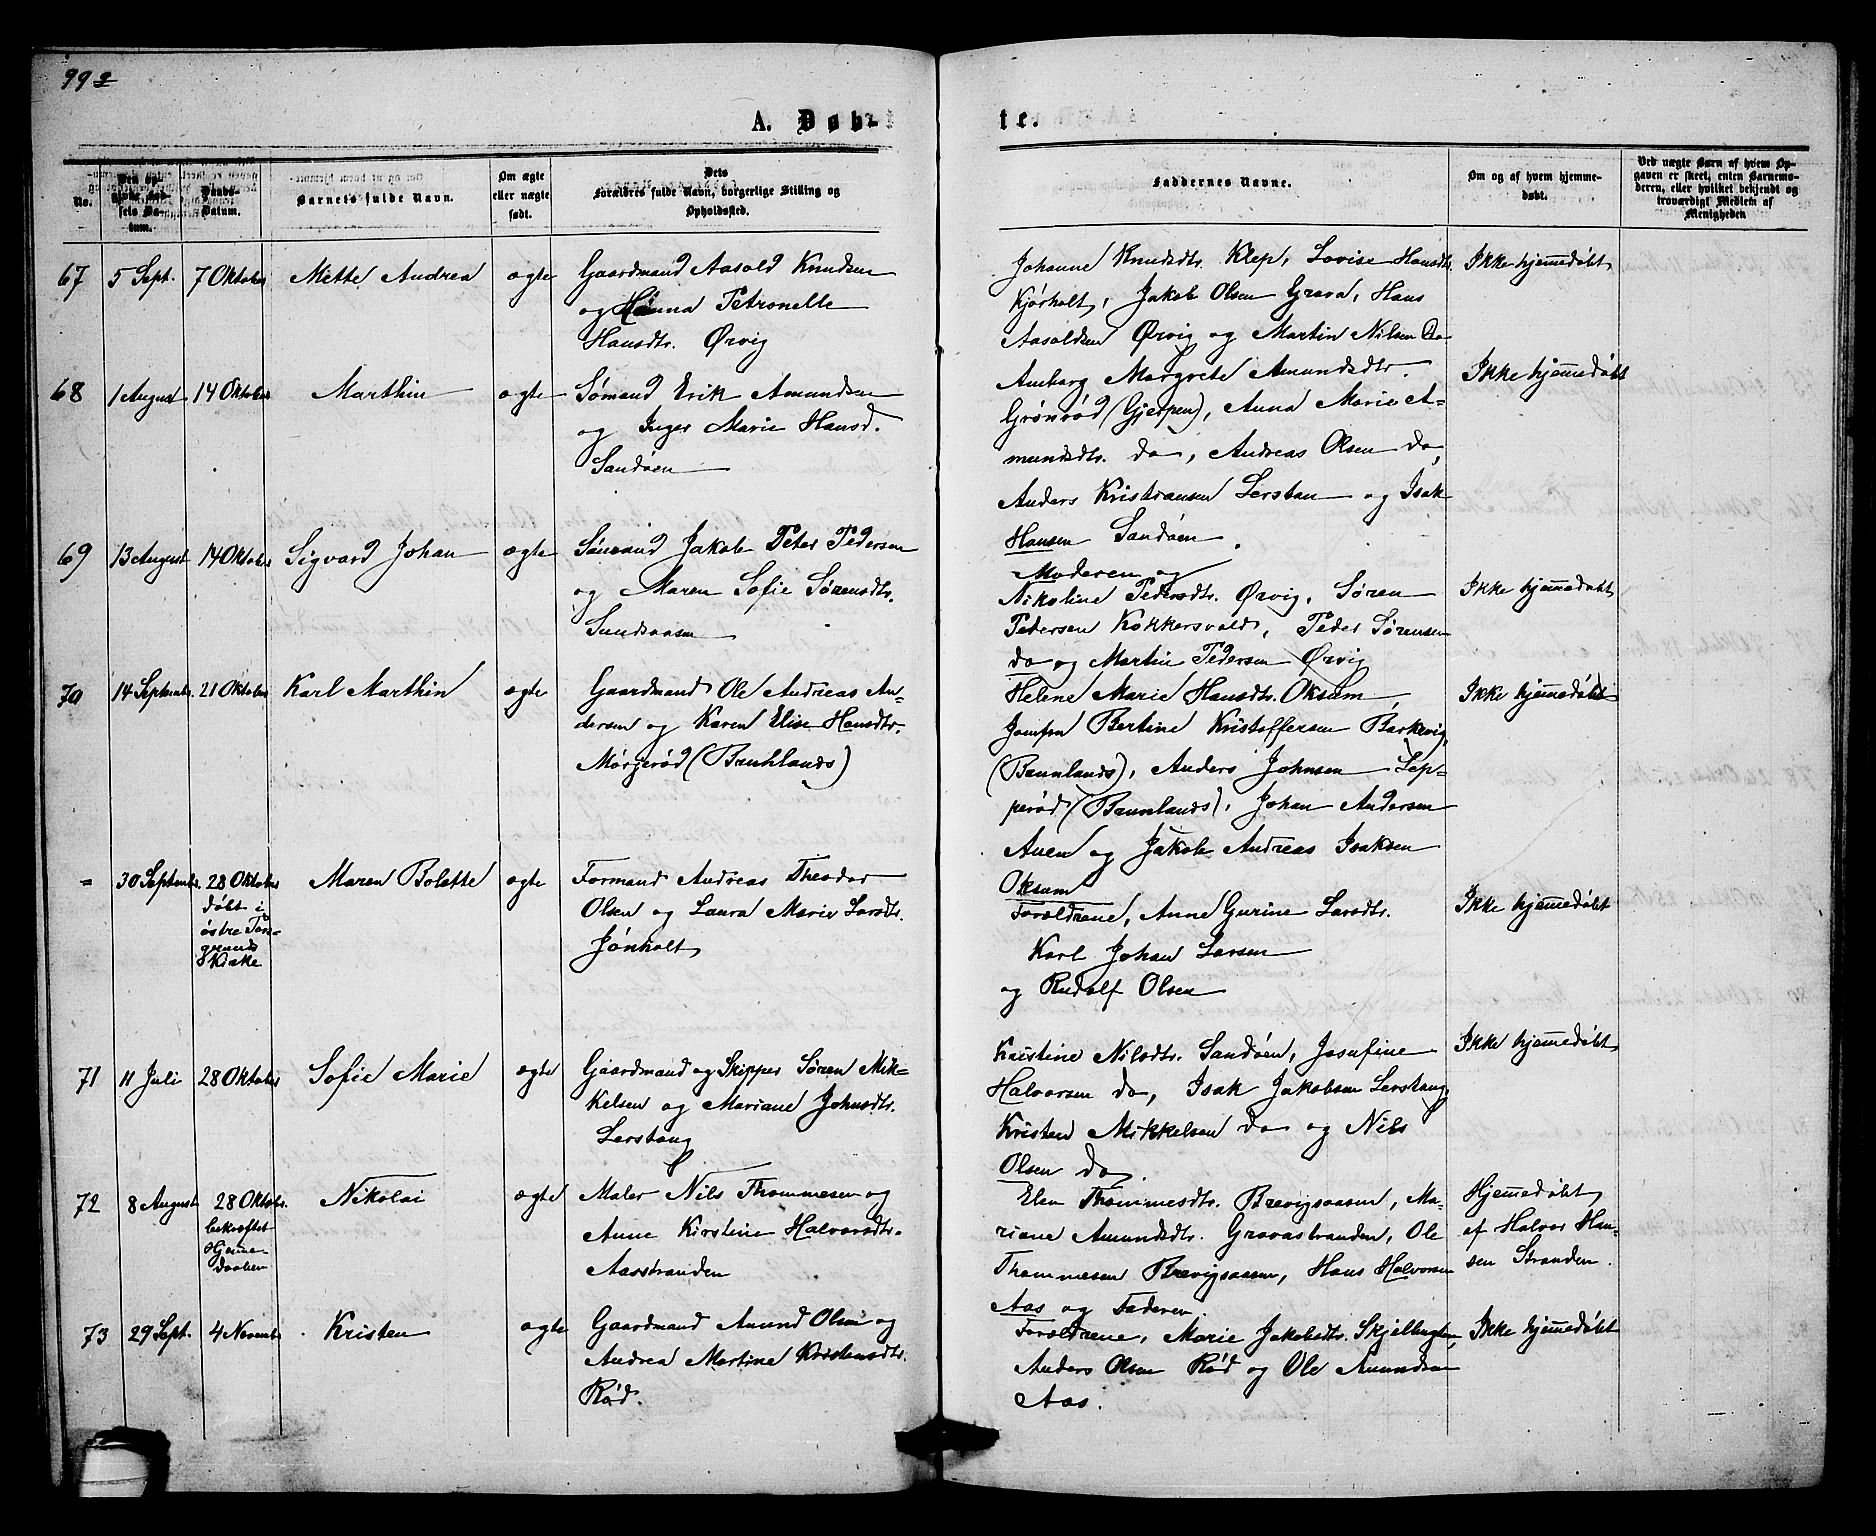 992
A. Døb-
te.
No.
Den op-
givne Fød-
sels Da-
tum.
Daabs-
Datum.
Barnets fulde Navn.
Om ægte
eller uægte
født.
Dets
Forældres fulde Navn, borgerlige Stilling og
Opholdssted.
Faddernes Navne.
Om og af hvem hjemme-
døbt.
Ved uægte Børn af hvem Op-
gaven er skeet, enten Barnemo-
deren, eller hvilket bekjendt og
troværdigt Medlem af
Menigheden
67 5 Sept. 7 Oktober Mette Andrea ægte
Gaardmand Aasold Knudsen
og Hanna Petronelle
Hansdtr. Ørvig
Johanne Knudsdtr. Klep, Lovise Hansdtr.
Kjørholt, Jakob Olsen Grava, Hans
Aasoldsen Ørvig og Martin Nilsen do
Ikke hjemmedøbt
68 1 August 14 Oktober Marthin ægte
Sømand Erik Amundsen
og Inger Marie Hansd.
Sandøen
Amborg Margrete Amundsdtr.
Grønrød (Gjerpen), Anna Marie A-
mundsdtr. do, Andreas Olsen do,
Anders Kristiansen Lerstan og Isak
Hansen Sandøen.
Ikke hjemmedøbt
69 13 August 14 Oktober Sigvard Johan ægte
Sømand Jakob Peter Pedersen
og Maren Sofie Sørensdtr.
Sundsaasen
Moderen og
Nikoline Pedersdtr. Ørvig, Søren
Pedersen Kokkersvold, Peder Sørensen
do og Martin Pedersen Ørvig
Ikke hjemmedøbt
70 14 Septembr. 21 Oktober Karl Marthin ægte
Gaardmand Ole Andreas An-
dersen og Karen Elise Hansdtr.
Mørgerød (Bamhlands)
Helene Marie Hansdtr. Oksum,
Jomfru Bertine Kristoffersen Barkevig,
(Bamlands), Anders Johnsen Lep-
perød (Bamlands), Johan Andersen
Auen og Jakob Andreas Isaksen
Oksum
Ikke hjemmedøbt
= 30 Septembr. 28 Oktober
døbt i
østre Pors-
grunds
Kirke
Maren Bolette ægte
Formand Andreas Theodor
Olsen og Laura Marie Larsdtr.
Jønholt
Forældrene, Anne Gurine Larsdtr.
Karl Johan Larsen
og Rudolf Olsen
Ikke hjemmedøbt
71 11 Juli 28 Oktober Sofie Marie ægte
Gaardmand og Skipper Søren Mik-
kelsen og Mariane Johnsdtr.
Lerstang
Kristine Nilsdtr. Sandøen, Josefine
Halvorsen do, Isak Jakobsen Lerstang,
Kristen Mikkelsen do og Nils
Olsen do.
Ikke hjemmedøbt
72 8 August 28 Oktobr.
bekræftet
Hjemme-
daaben
Nikolai ægte
Maler Nils Thommesen og
Anne Kirstine Halvorsdtr.
Aasstranden
Elen Thommesdtr. Brevigsaasen, Ma-
riane Amundsdtr. Gravastranden, Ole
Thommesen Brevigsaasen, Hans Halvorsen
Aas og Faderen.
Hjemmedøbt
af Halvor Han-
sen Stranden.
73 29 Sept. 4 Novembr Kristen ægte
Gaardmand Amund Olsen og
Andrea Martine Kristensdtr.
Rød.
Forældrene, Marie Jakobsdtr. Skjelbugten,
Anders Olsen Rød og Ole Amundsen
Aas.
Ikke hjemmedøbt